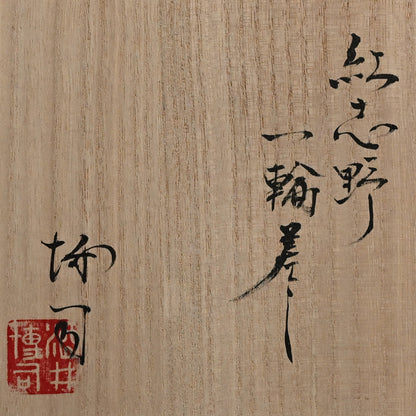 紅志野
一輪差し
博司
酒井
博司